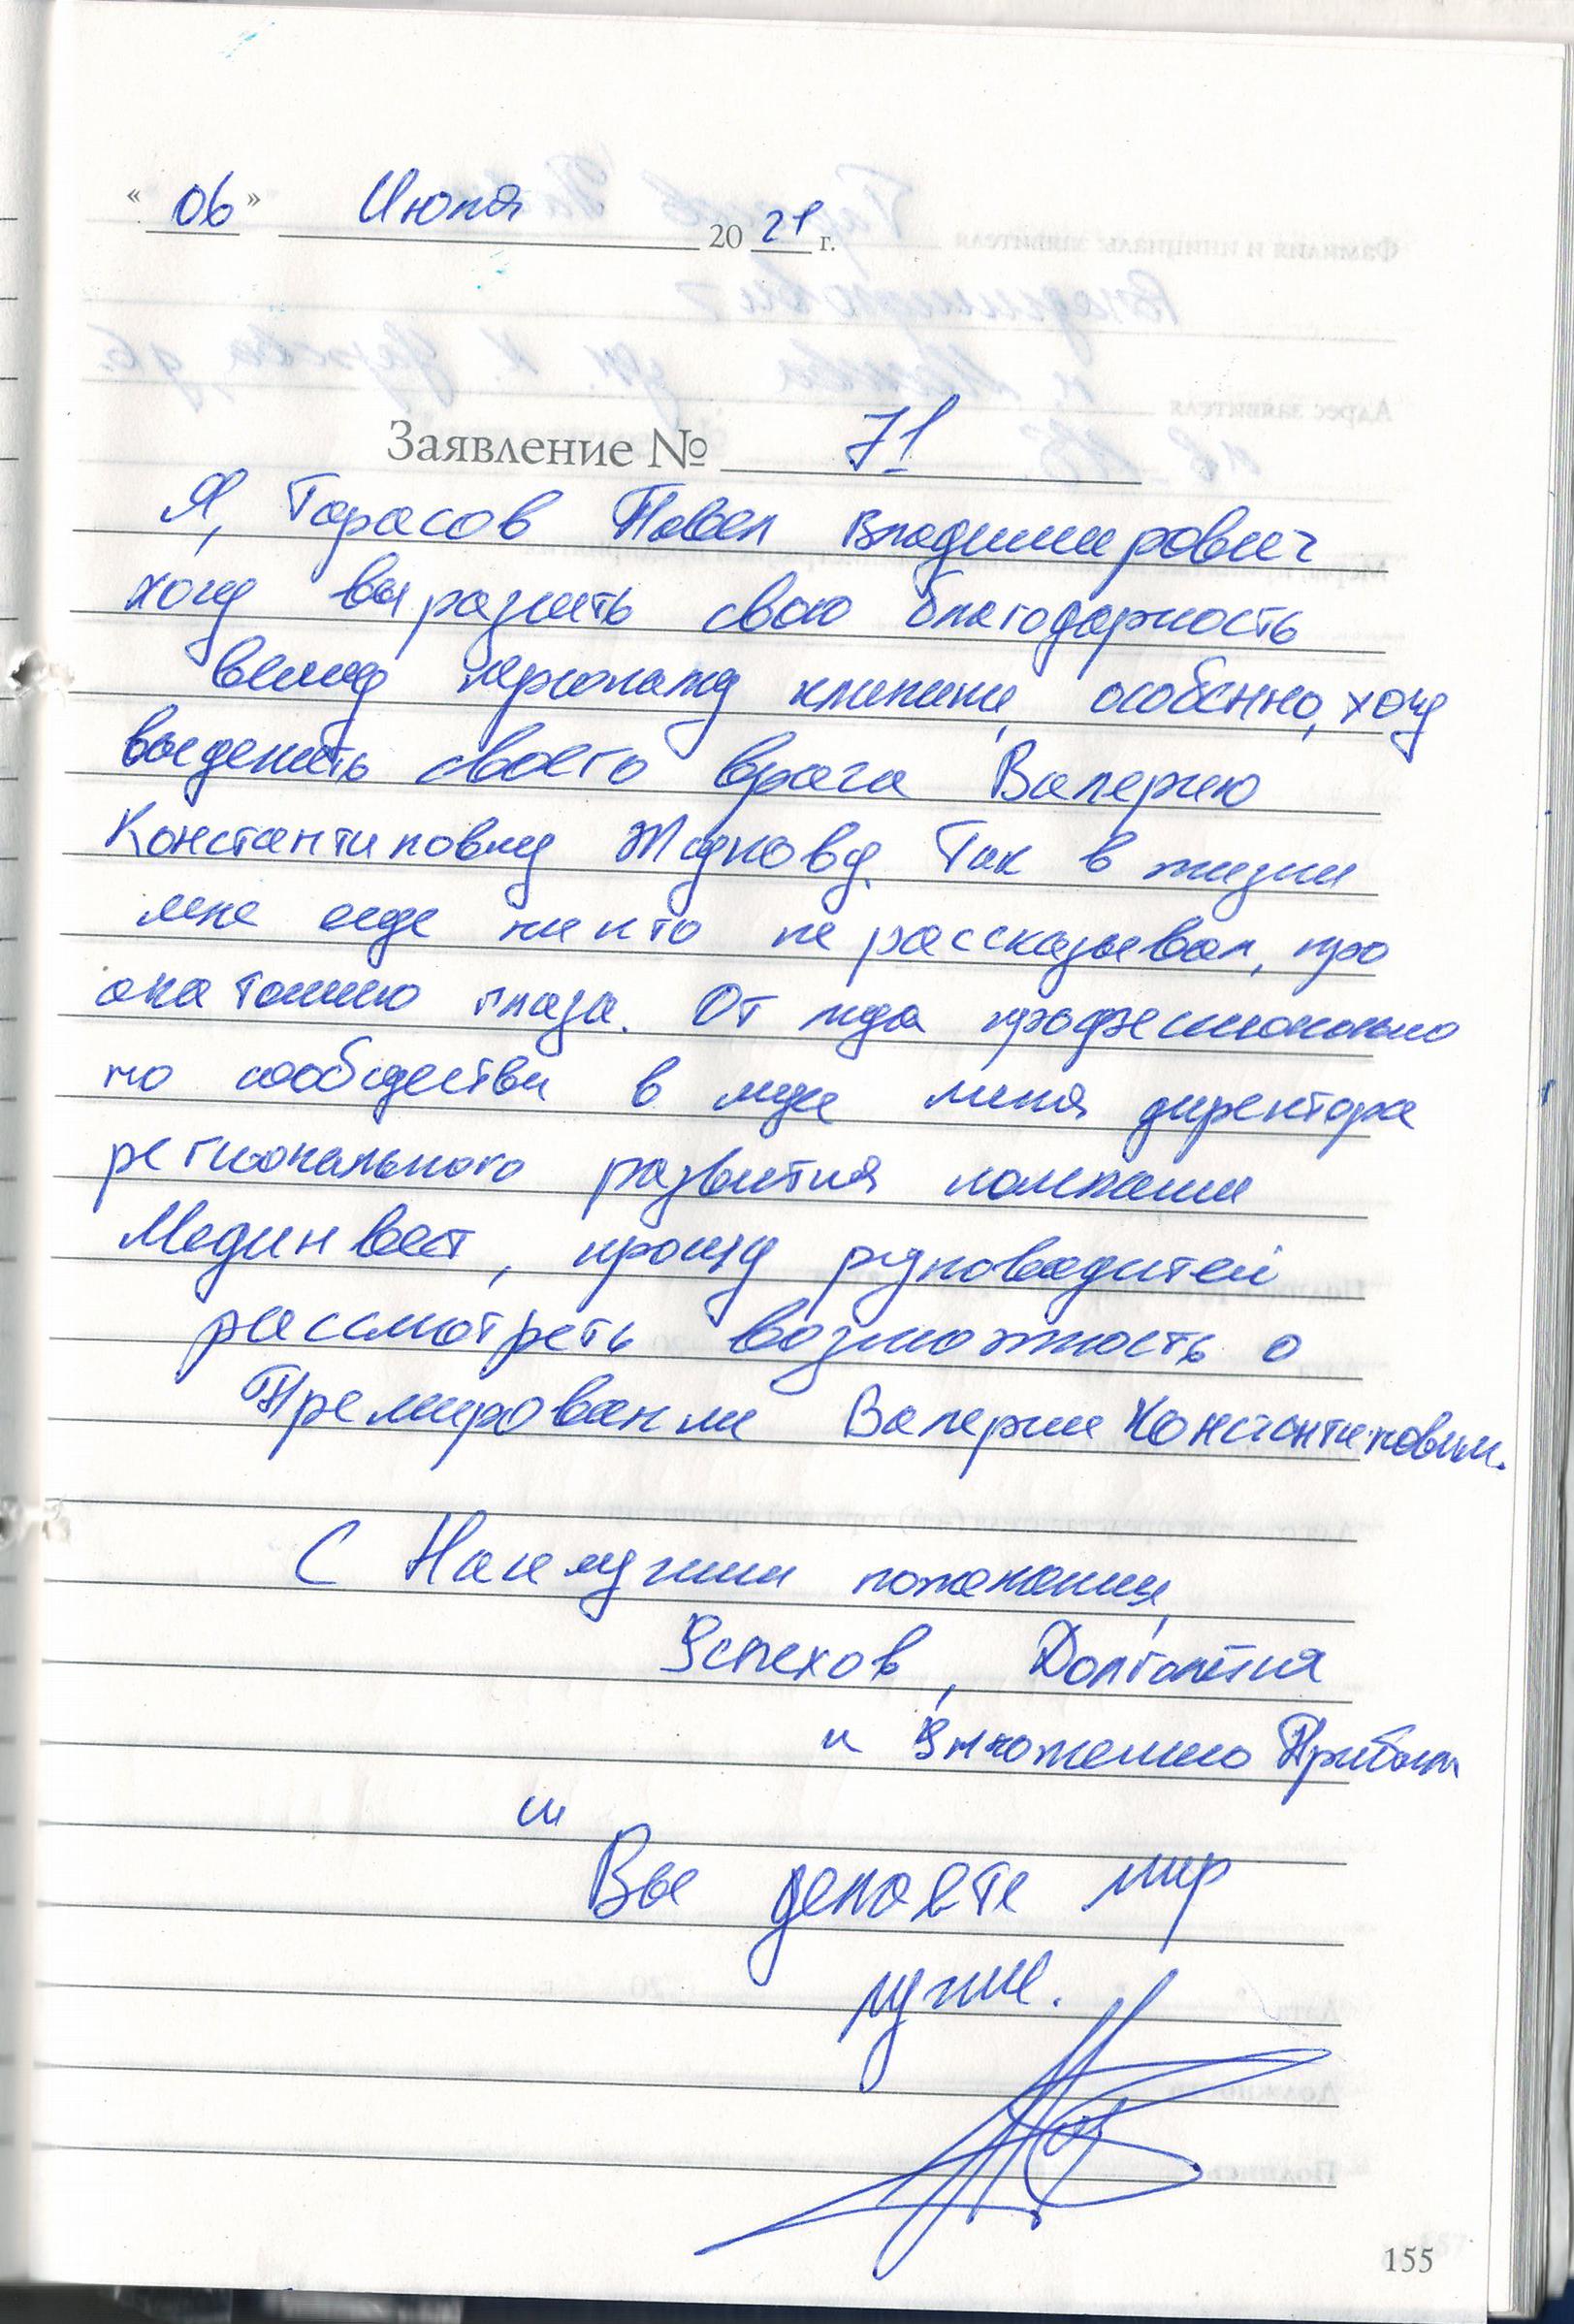 « 06 » Июля 20 21 г.
Заявление № 71
Я, Тарасов Павел Владимирович
хочу выразить свою благодарность
всему персоналу клиники, особенно, хочу
выделить своего врача Валерию
Константиновну Жукову. Так в жизни
мне еще никто не рассказывал, про
анатомию глаза. От лица професионально
го сообщества в лице меня директора
регионального развития компании
Мединвест, прошу руководителей
рассмотреть возможность о
Премировании Валерии Константиновны.
С Наилучшими пожеланиями,
Успехов, Долголетия
и Умножению Прибыли
Вы делаете мир
лучше.
155